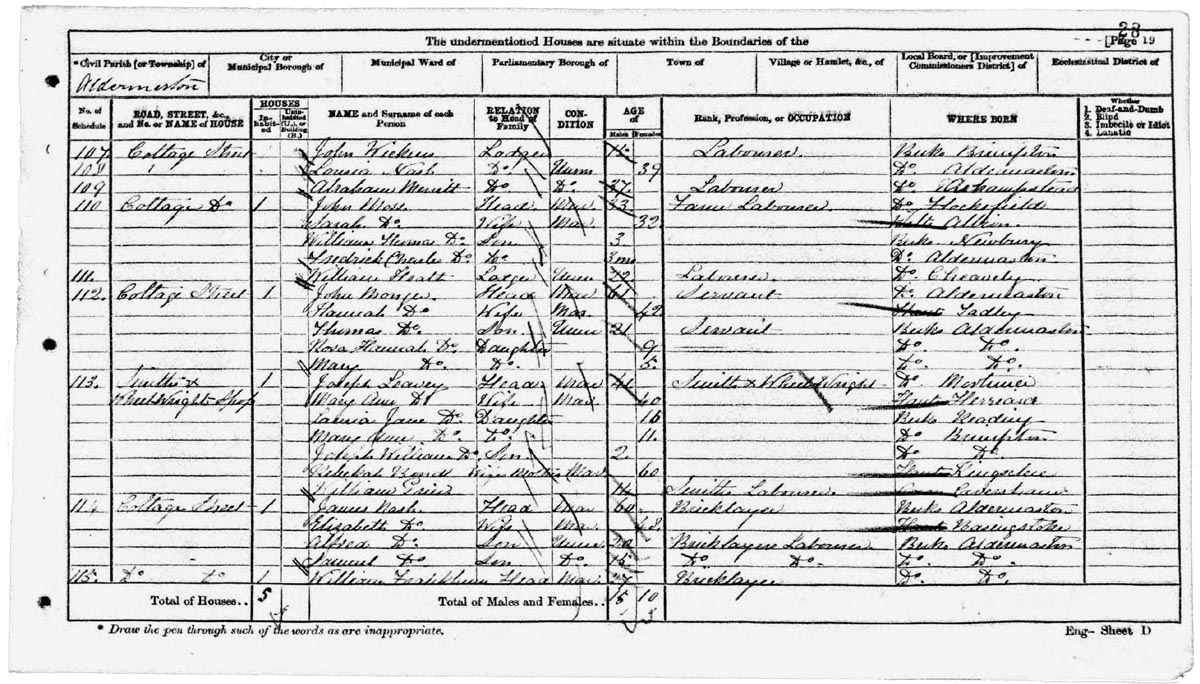 23
[Page 19
The undermentioned Houses are situate within the Boundaries of the
* Civil Parish [or Township] of
City or Municipal Borough of
Municipal Ward of
Parliamentary Borough of
Town of
Village or Hamlet, &c., of
Local Board, or [Improvement Commissioners District] of
Ecclesiastical District of
Aldermaston
No. of Schedule
ROAD, STREET, &c., and No. or NAME of HOUSE
HOUSES
In-habit-ed
Unin-habited (U.), or Building (B.)
NAME and Surname of each Person
RELATION to Head of Family
CON-DITION
AGE of
Males
Females
Rank, Profession, or OCCUPATION
WHERE BORN
Whether
1. Deaf-and-Dumb
2. Blind
3. Imbecile or Idiot
4. Lunatic
107 Cottage Street John Lodger Labourer Berks Brimpton
108 Louisa Nash Do. Unm 39 Do Aldermaston
109 Abraham Merritt Do Do. 27 Labourer Do
110 Cottage Do 1 John Head Mar 33 Farm Labourer Do
Sarah Do. Wife Mar 32
William Thomas Do. Son 3 Berks Newbury
Fredrick Charles Do Do. 3mo Do. Aldermaston
111. William Lodger Unm 22 Labourer Do Chieveley
112. Cottage Street 1 John Monger Head Mar 61 Servant Do Aldermaston
Hannah Do Wife Mar. 42 Hants Tadley
Thomas Do. Son Unm 21 Servant Berks Aldermaston
Hannah Do. Daughter 9 Do Do.
Mary Do. Do. 5. Do. Do.
113. Smith & 1 Joseph Head Mar 41 Smith & Wheel Wright Do Mortimer
Wheel Wrights Shop Mary Ann Do Wife Mar 40 Hants Herriard
Jane Do. Daughter 16 Berks Reading
Mary Ann Do. Do. 11. Do Brimpton
Joseph William Do Son 2. Do Do
Bond Wifes Mother 60 Hants Kingsclere
William 14 Smiths Labourer Caversham
114 Cottage Street 1 James Nash Head Mar 60 Bricklayer Berks Aldermaston
Elizabeth Do Wife Mar. 48. Hants Basingstoke
Alfred Do Son Unm 20 Bricklayers Labourer Berks Aldermaston
Samuel Do Son Do. 15 Do Do. Do. Do
115. Do Do 1 William Head Mar. 27 Bricklayer Do. Do.
Total of Houses.. 5
Total of Males and Females.. 15 10
* Draw the pen through such of the words as are inappropriate.
Eng- Sheet D